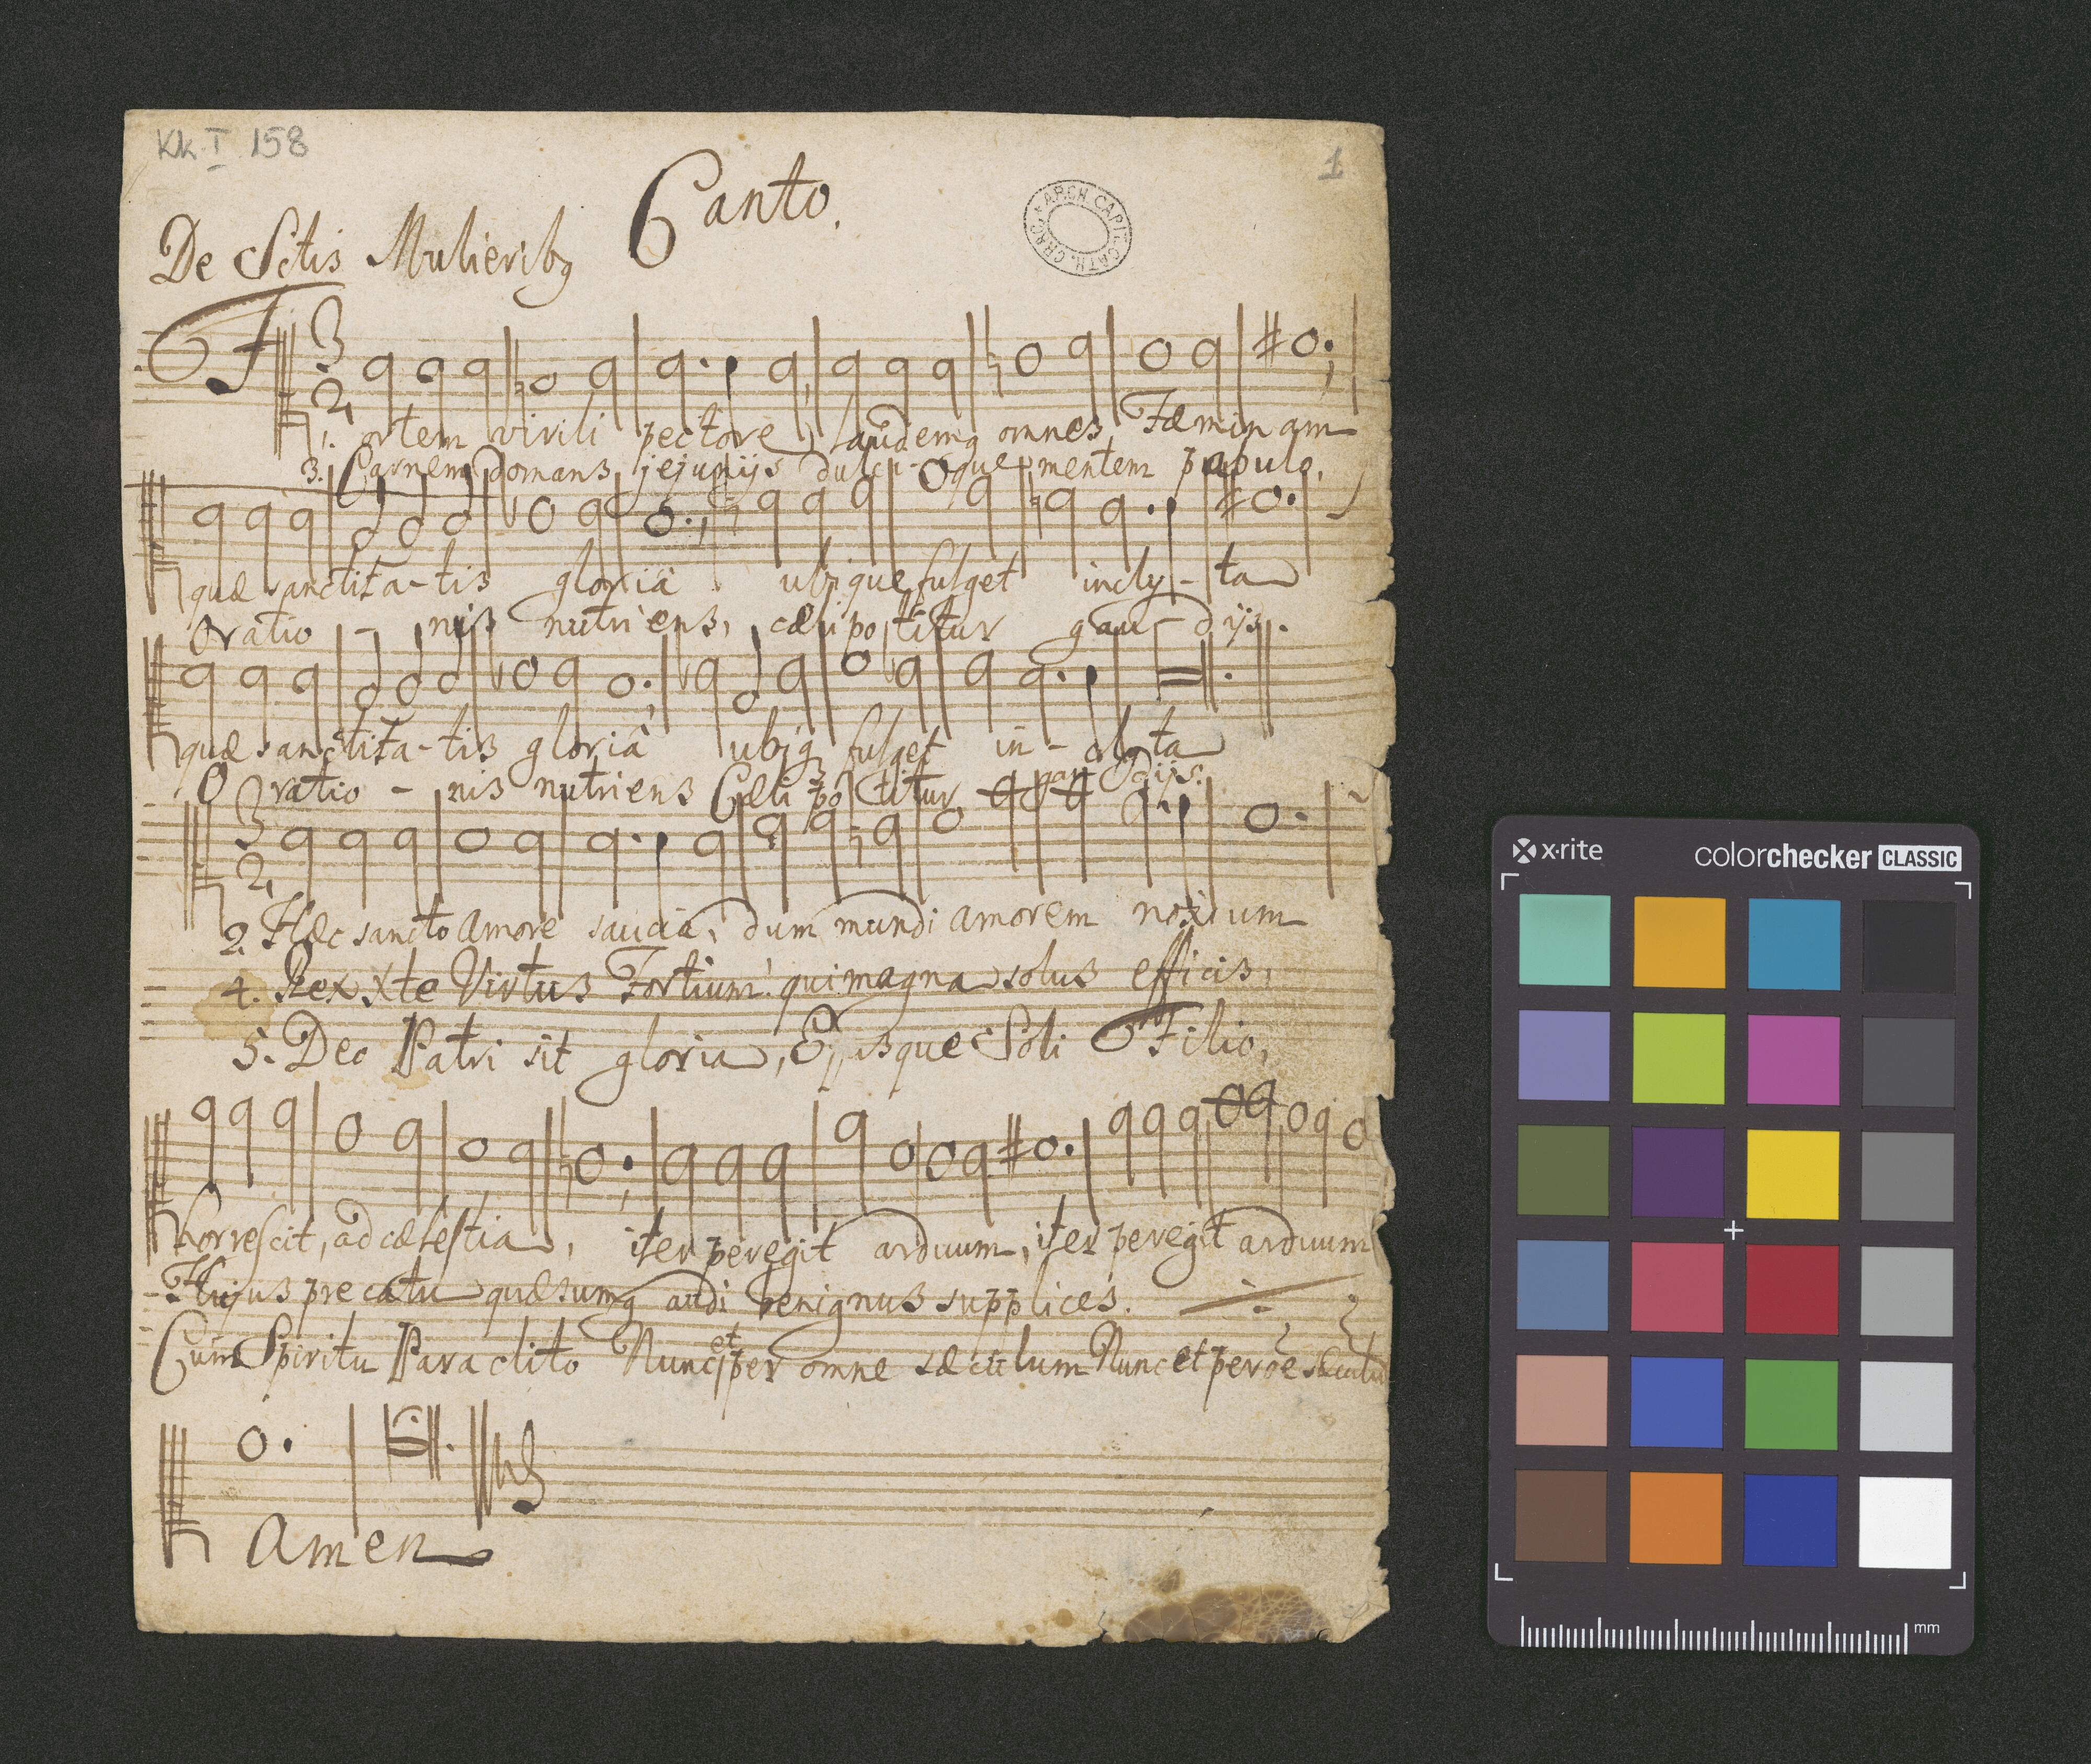 Kk. I. 158
1
Canto.
ARCH. CAPIT. CATH. CRAC.
De Sctis Mulieribq
3
2
F
1. ortem virili pectore, laudemq omnes Fæminam
3. Carnem domans jejunijs dulci-que mentem pabulo,
quæ sanctita-tis gloriâ ubique fulget incly-ta
Oratio - nis nutriens, cæli potitur gau-dijs.
quæ sanctita-tis gloriâ ubiq fulget in-clyta
Oratio - nis nutriens Cæli potitur gau dijs.
3
2
2. Hæc sancto amore saucia, dum mundi amorem noxium
4. Rex Xte Virtus Fortium! qui magna solus efficis,
5. Deo Patri sit gloria, Ejusque Soli Filio,
horrescit, ad cælestia, iter peregit arduum, iter peregit arduum
Hujus precatu quæsumq audi benignus supplices.
Cum Spiritu Paraclito Nunc et per omne sæculum Nunc et per oe sæculu
Amen
x·rite colorchecker CLASSIC
mm